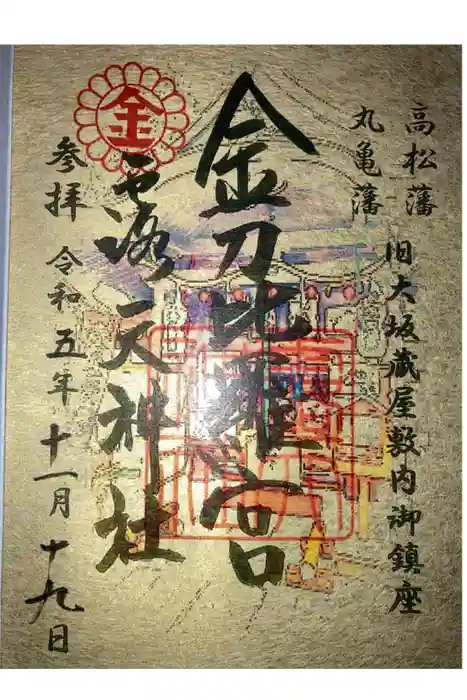 高松藩
丸亀藩
旧大坂蔵屋敷内御鎮座
金刀比羅宮
露天神社
金
参拝
令和五年十一月十九日